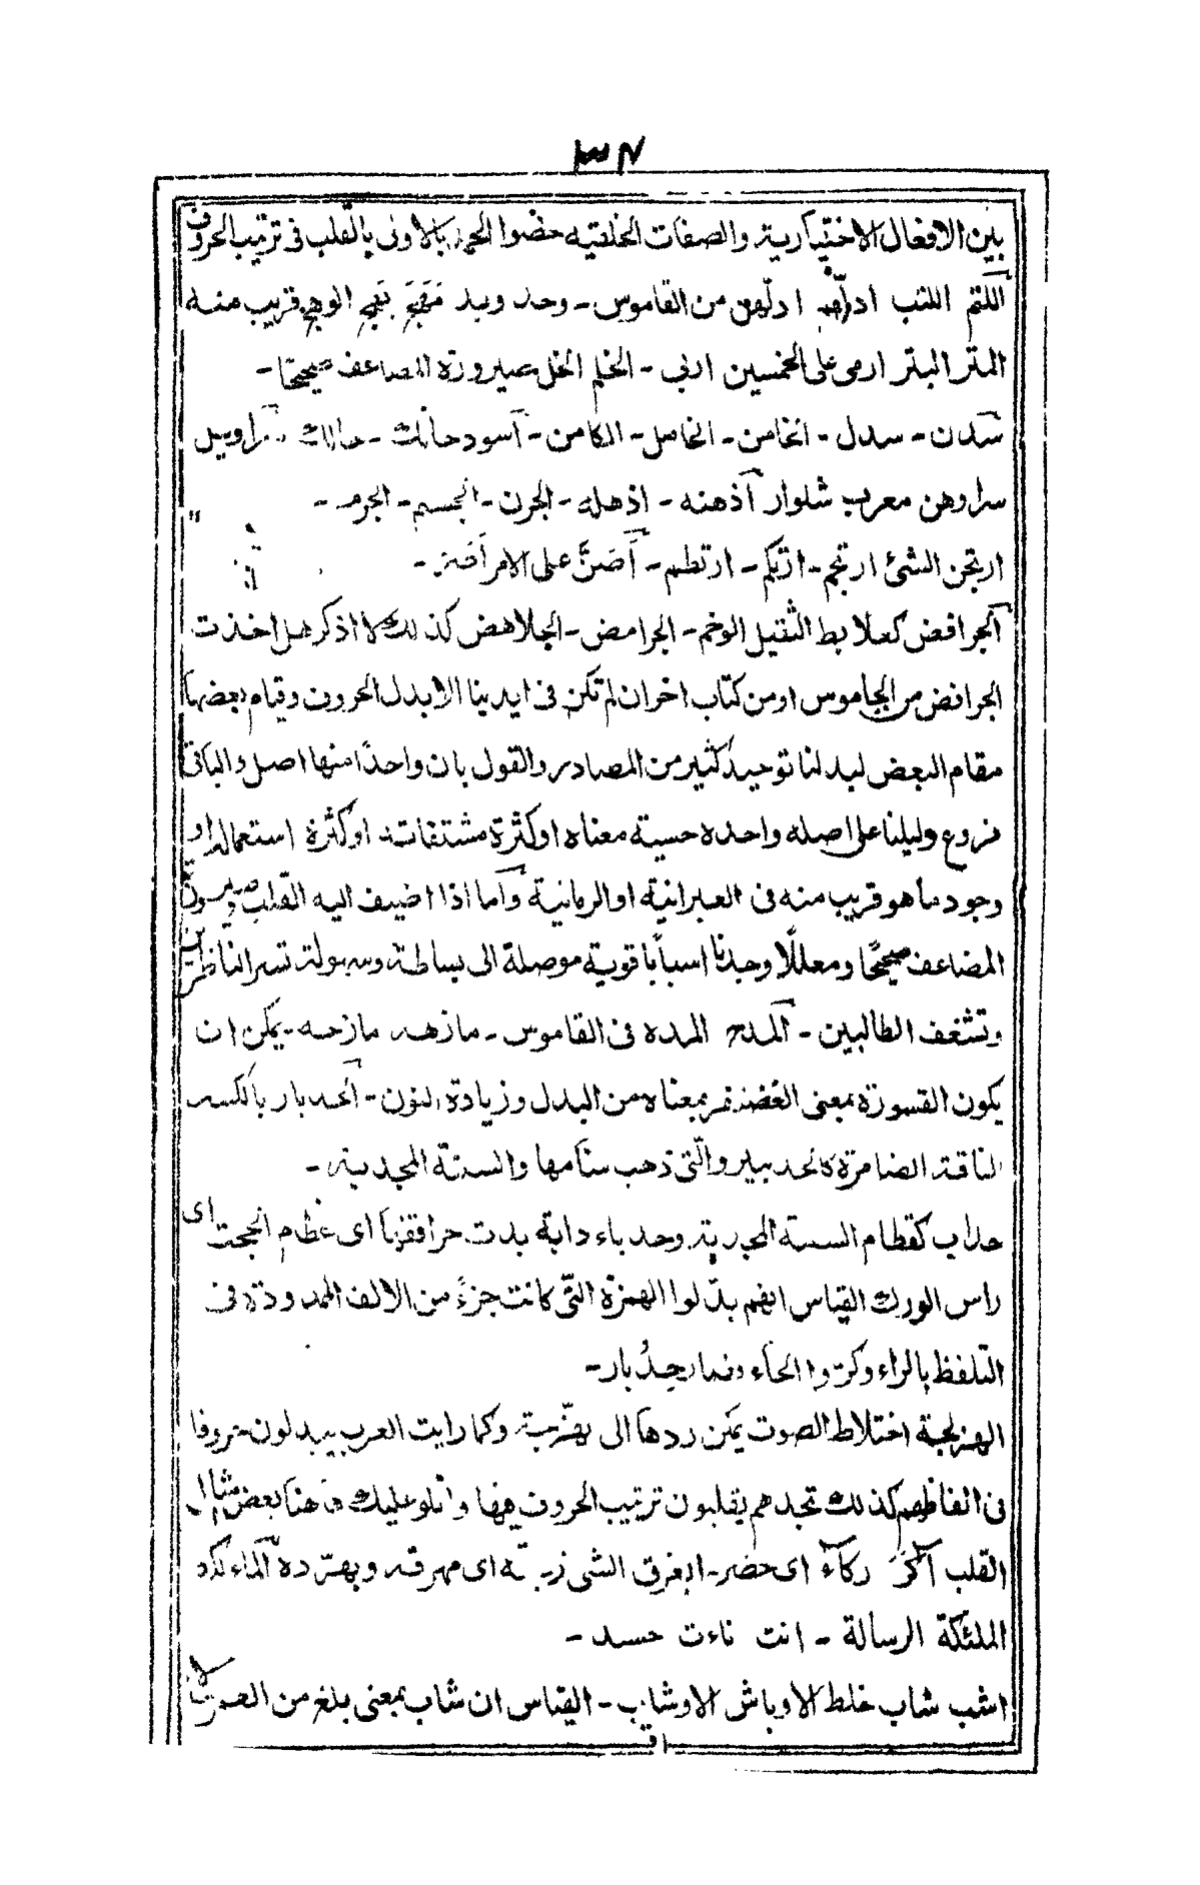 ٣٧
بين الافعال الاختيارية والصفات الخلقتيه خصوا الحمد بالاولى بالقلب فى ترتيب الحروف
اللتم اللتب ادلهم ادلهن من القاموس - وحد وبد الوهج قريب منه
المتر البتر ارمى على الخمسين اربى - الخلم الخل صيرورة المضاعف صحيحًا -
سدن - سدل - الخامن - الخامل - الكامن - أسود حانك - حالك سراويل
سراوهن معرب شلوار أذهنه - اذهله - الجرن - الجسم - الجرم -
ارتجن الشئ ارتجم - ارتكم - ارتطم - أضنَّ على الامر
الجرافض كعلابط الثقيل الوخم - الجرامض - الجلاهض كذلك لا اذكر هل اخذت
الجرافض من الجاموس او من كتاب اخر ان لم تكن فى ايدينا الا بدل الحروف وقيام بعضها
مقام البعض لبد لنا توحيد كثير من المصادر والقول بان واحدًا منها اصل والباقى
فروع وليلنا على اصله واحده حسيته معناه او كثرة مشتقاته او كثرة استعماله او
وجود ما هو قريب منه فى العبرانية او الرمانية وأما اذا اضيف اليه القلب وصيرورة
المضاعف صحيحًا ومعللًا وجدنا اسبابا قوية موصلة الى بساطة وسهولة تسر الناظرين
وتشغف الطالبين - المدح المده فى القاموس - مازهه مازحه - يمكن ان
يكون القسورة بمعنى الغضنفر بمعناه من البدل وزيادة النون - الحدبار بالكسر
الناقة الضامرة كالحدبير والتى ذهب سنامها والسنة المجدبة -
حداب كقطام السنة المجدبة وحدباء دابة بدت حراقفها اى عظام الحجبت اى
راس الورك القياس انهم بدلوا الهمزة التى كانت جزءً من الالف الممدودة فى
التلفظ بالراء وكروا الحاء فصار حِدْبار -
الهزلجة اختلاط الصوت يمكن ردها الى بهزجة وكما رايت العرب يبدلون حروفا
فى الفاظهم كذلك تجدهم يقلبون ترتيب الحروف فيها واتلو عليك هاهنا بعض مثال
القلب اى حضر - ابغرق الشى اى مهرقه وبهترده الماء لكد
الملئكة الرسالة - انت نات حسد -
اشب شاب خلط الاوباش الاوشاب - القياس ان شاب بمعنى بلغ من العمر